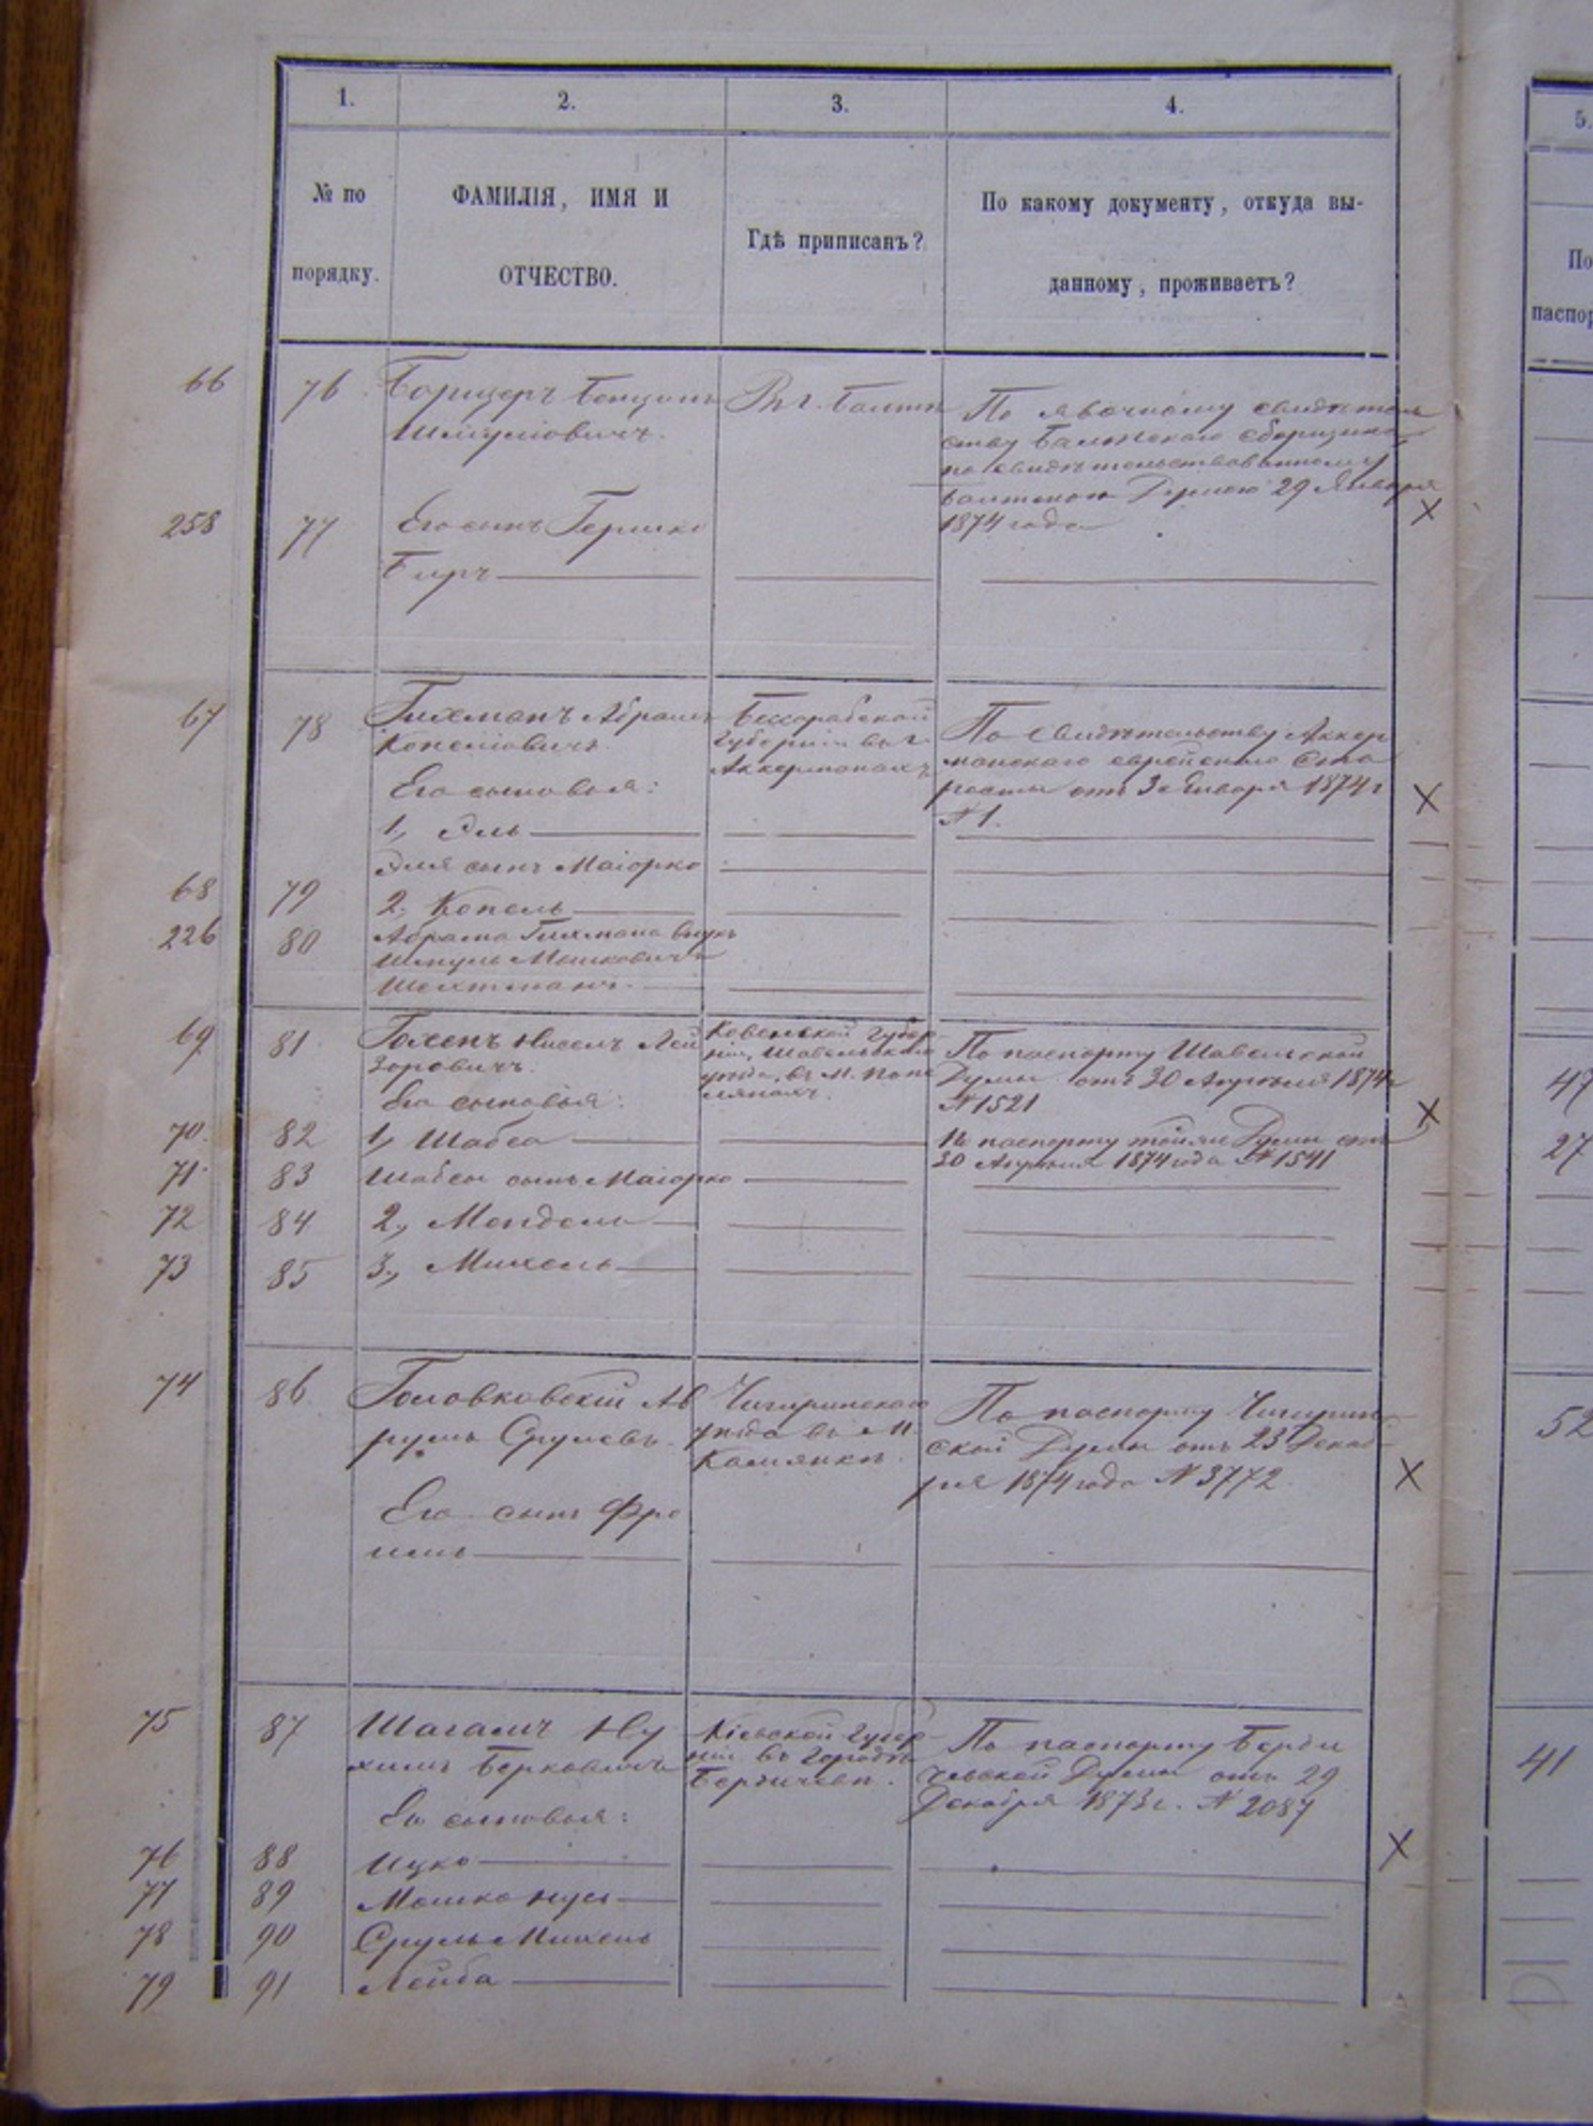 1.
2.
3.
4.
5.
№ по
порядку.
ФАМИЛІЯ, ИМЯ И
ОТЧЕСТВО.
Гдѣ приписанъ?
По какому документу, откуда вы-
данному, проживаетъ?
По
паспор
66
76
Шмулiовичъ.
Въ г. Балтѣ
По явочному свидѣтель
ству Балтскаго сборщика
Балтскою Думою 29 Января
1874 года
258
77
Его сынъ Гершко
Беръ
67
78
Гихманъ Абрамъ
Копелiовичъ.
Бессарабской
Губернiи въ г.
Аккерманахъ
По свидѣтельству Аккер
манскаго еврейскаго Ста
росты отъ 3 Января 1874 г
№ 1.
Его сыновья:
1, Эль
Эля сынъ Маiорко
68
79
2, Копель
226
80
Абрама Гихмана внукъ
Шмуль Мошковичъ
Шехтманъ.
69
81
Нисель Лей
зоровичъ.
Ковенской Губер
нiи, Шавельскаго
уѣзда, въ М. Попе
лянахъ.
По паспорту Шавельской
Думы отъ 30 Апрѣля 1874 г
№ 1521
47
Его сыновья:
70
82
1, Шабса
По паспорту той же Думы отъ
30 Апрѣля 1874 года № 1541
27
71
83
Шабсы сынъ Маiорко
72
84
2, Мендель
73
85
3, Михель
74
86
Головковскiй Ав
румъ Срулевъ
Чигиринскаго
уѣзда въ М.
Камянкѣ.
По паспорту Чигирин
ской Думы отъ 23 Декаб
ря 1874 года № 3772
52
Его сынъ Фро
имъ
75
87
Шагалъ Ну
химъ Берковичъ
Кiевской Губер
нiи въ Городѣ
Бердичевѣ.
По паспорту Берди
чевской Думы отъ 29
Декабря 1873 г. № 2087
41
Его сыновья:
76
88
Ицко
77
89
Мошко Нусь
78
90
Сруль Михель
79
91
Лейба